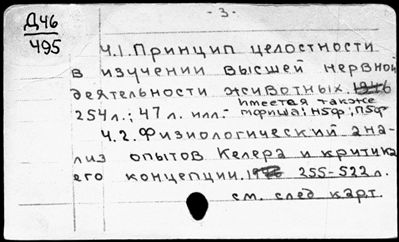 - 3 -
Д46
495
Ч.1. Принцип целостности
в изучении высшей нервной
деятельности животных.
254 л.; 47 л. илл.- Имеется также
мфиша; Н5ф; П5ф
Ч.2. Физиологический ана-
лиз опытов Келера и критика
его концепции. 255-522 л.
см. след карт.